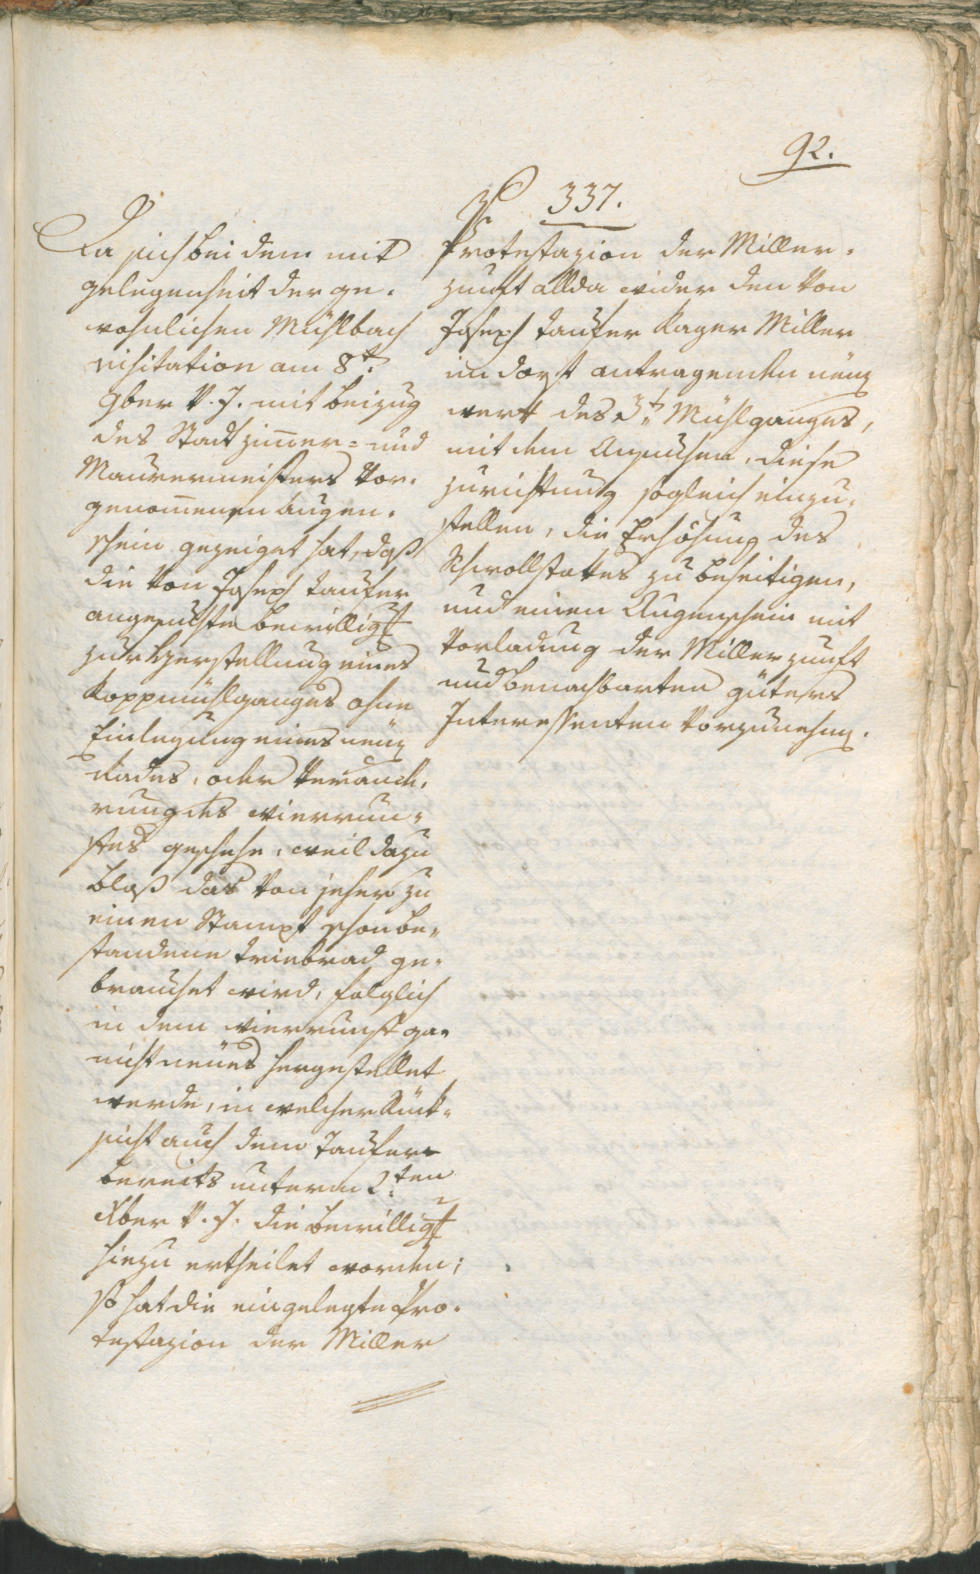 92.
Da sich bei dem mit
gelegenheit der ge¬
wohnlichen Mühlbach
visitation am 8t.
9ber v. J. mit beizug
des Stadt zimer- und
Maurermeisters vor¬
genomenen Augen¬
schein gezeiget hat, daß
die von Joseph Taufer
angesuchte bewilligg
zur Herstellung eines
Koppmühlganges ohne
Einlegung eines neuen
Rades, oder Verände¬
rung des Wierrun¬
stes geschehe, weil dazu
bloß das von jeher zu
einen Stampf schon be¬
standene triebrad ge¬
brauchet wird, folglich
in dem Wierrunst gar
nicht neues hergestellet
werde, in welcher Rück¬
sicht auch dem Taufer
bereits unterm 2ten
Xber v. J. die bewilligg
hiezu ertheilet worden;
so hat die eingelegte Pro¬
testazion der Miller
N 337.
Protestazion der Miller¬
zunft allda wider den von
Joseph Taufer Kager Miller
im dorf antragenden neuen
werk des 3t. Mühlganges,
mit dem Ansuchen, diese
zurichtung sogleich einzu¬
stellen, die Erhöhung des
Schwollstattes zu beseitigen,
und einen Augenschein mit
Vorladung der Miller zunft
und benachbarten güters
Interessenten vorzunehmen.